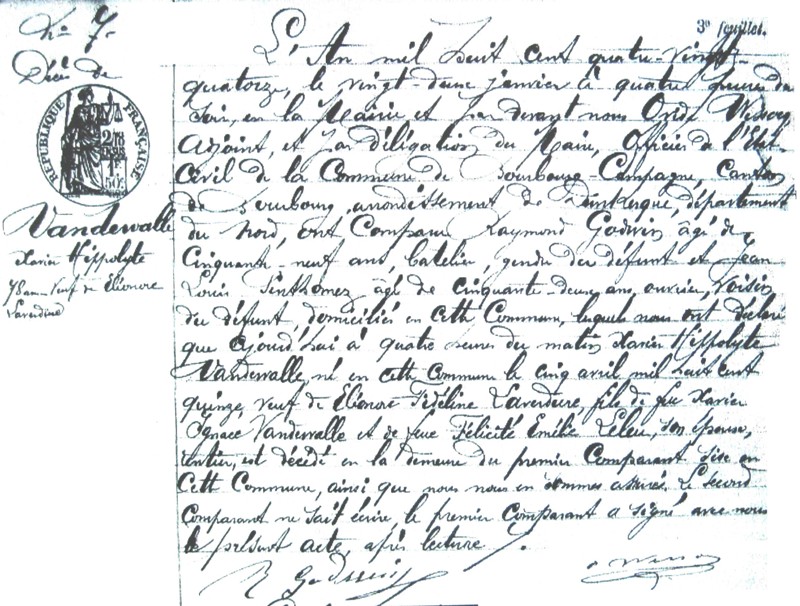 3e feuillet.
No 7.
Décès de
RÉPUBLIQUE FRANÇAISE
Vandewalle
Xavier Hippolyte
78 ans Veuf de Eléonore
Laverdure
L'An mil huit cent quatre-vingt-
quatorze, le vingt-deux janvier à quatre heures du
soir, en la Mairie et par devant nous
Adjoint, et par délégation du Maire, Officier de l'Etat-
Civil de la Commune de Bourbourg-Campagne, Canton
de Bourbourg, arrondissement de Dunkerque, département
du Nord, ont Comparu Raymond Godwin âgé de
Cinquante-neuf ans, batelier, gendre du défunt et Jean
Louis âgé de cinquante-deux ans ouvrier, Voisin
du défunt, domiciliés en cette Commune, lesquels nous ont déclaré
que aujourd'hui à quatre heures du matin Xavier Hippolyte
Vandewalle, né en cette Commune le cinq avril mil huit cent
quinze, veuf de Eléonore Fidéline Laverdure, fils de feu Xavier
Ignace Vandewalle et de feue Félicité Emélie Leleu, son épouse,
rentier, est décédé en la demeure du premier Comparant sise en
cette Commune, ainsi que nous nous en sommes assurés. Le second
Comparant ne sait écrire, le premier Comparant a signé avec nous
le présent acte, après lecture.